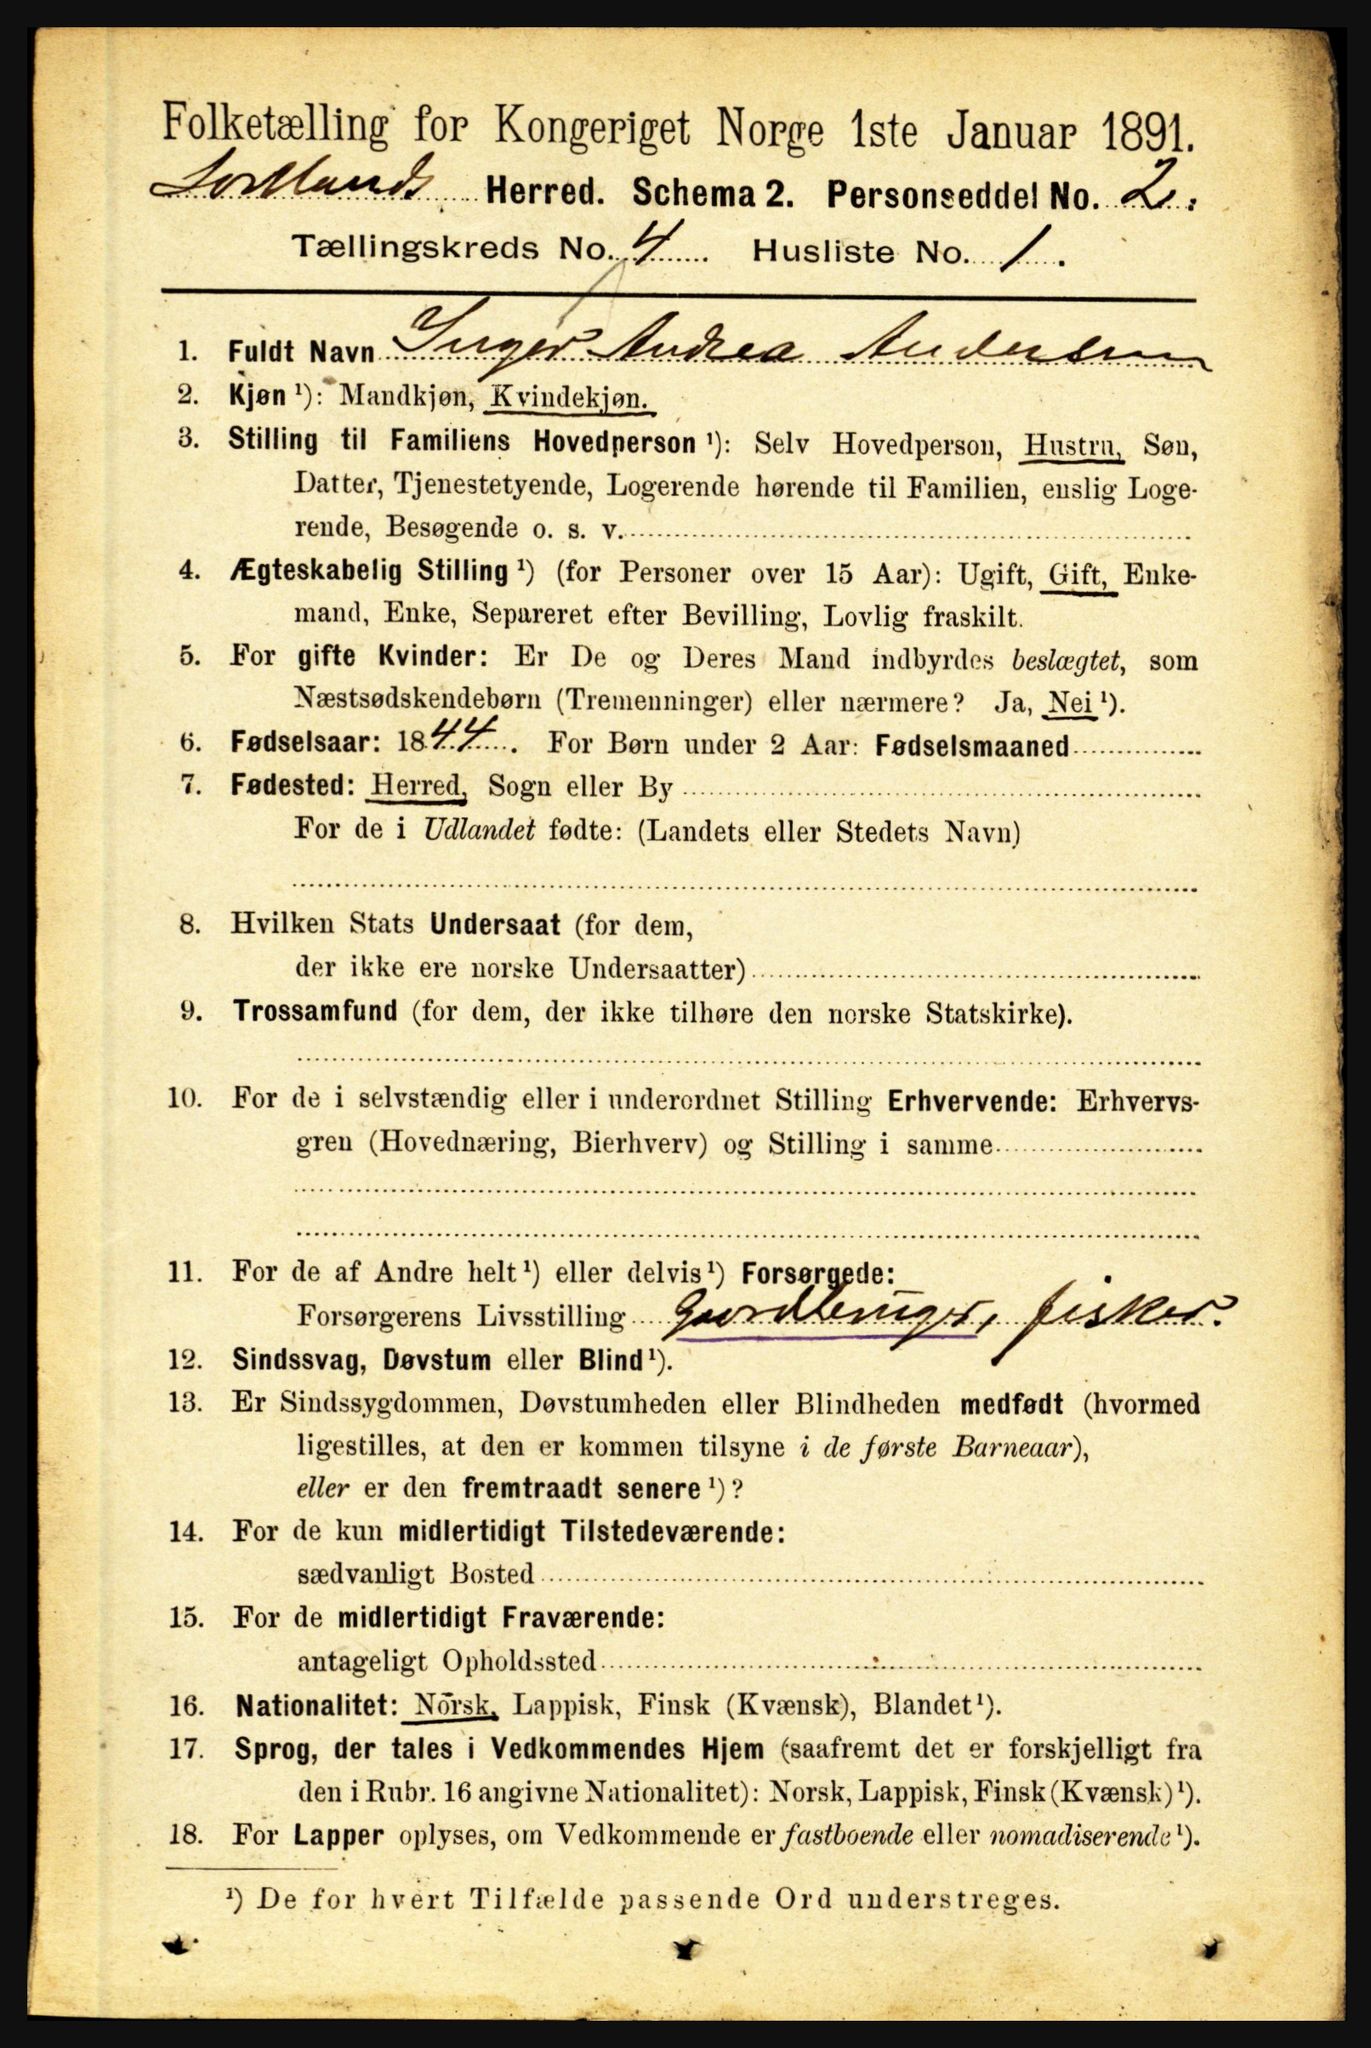 Folketælling for Kongeriget Norge 1ste Januar 1891.
Sortlands Herred. Schema 2. Personseddel No. 2.
Tællingskreds No. 4 Husliste No. 1.
1. Fuldt Navn Inger Andrea Andersen
2. Kjøn ¹): Mandkjøn, Kvindekjøn.
3. Stilling til Familiens Hovedperson ¹): Selv Hovedperson, Hustru, Søn,
Datter, Tjenestetyende, Logerende hørende til Familien, enslig Loge-
rende, Besøgende o. s. v.
4. Ægteskabelig Stilling ¹) (for Personer over 15 Aar): Ugift, Gift, Enke-
mand, Enke, Separeret efter Bevilling, Lovlig fraskilt.
5. For gifte Kvinder: Er De og Deres Mand indbyrdes beslægtet, som
Næstsødskendebørn (Tremenninger) eller nærmere? Ja, Nei ¹).
6. Fødselsaar: 1844. For Børn under 2 Aar: Fødselsmaaned
7. Fødested: Herred, Sogn eller By
For de i Udlandet fødte: (Landets eller Stedets Navn)
8. Hvilken Stats Undersaat (for dem,
der ikke ere norske Undersaatter)
9. Trossamfund (for dem, der ikke tilhøre den norske Statskirke).
10. For de i selvstændig eller i underordnet Stilling Erhvervende: Erhvervs-
gren (Hovednæring, Bierhverv) og Stilling i samme
11. For de af Andre helt ¹) eller delvis ¹) Forsørgede:
Forsørgerens Livsstilling Gaardbruger, fisker.
12. Sindssvag, Døvstum eller Blind ¹).
13. Er Sindssygdommen, Døvstumheden eller Blindheden medfødt (hvormed
ligestilles, at den er kommen tilsyne i de første Barneaar),
eller er den fremtraadt senere ¹)?
14. For de kun midlertidigt Tilstedeværende:
sædvanligt Bosted
15. For de midlertidigt Fraværende:
antageligt Opholdssted
16. Nationalitet: Norsk, Lappisk, Finsk (Kvænsk), Blandet ¹).
17. Sprog, der tales i Vedkommendes Hjem (saafremt det er forskjelligt fra
den i Rubr. 16 angivne Nationalitet): Norsk, Lappisk, Finsk (Kvænsk) ¹).
18. For Lapper oplyses, om Vedkommende er fastboende eller nomadiserende ¹).
¹) De for hvert Tilfælde passende Ord understreges.